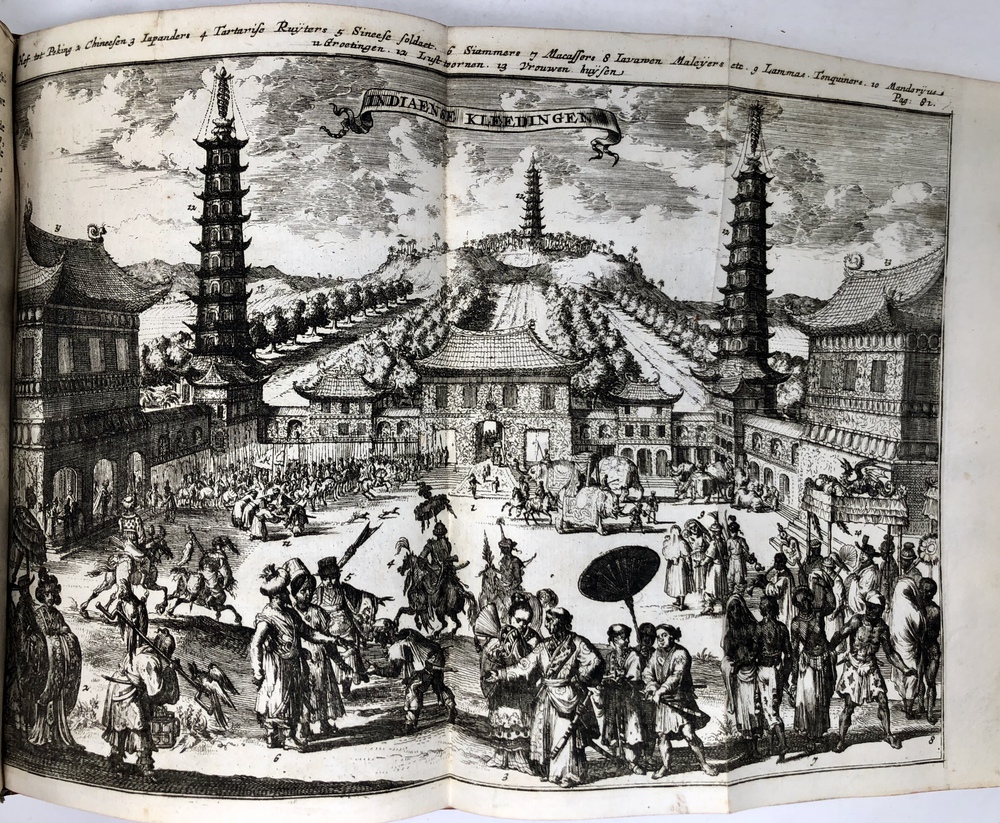 Hof tot Peking 2 Chineesen 3 Iapanders 4 Tartarise Ruÿters 5 Sineese soldaet. 6 Siammers 7 Macassers 8 Iavanen Maleÿers etc. 9 Lammas. Tonquiners. 10 Manderÿns
11 Grootingen. 12 Lust-toornen. 13 Vrouwen huÿsen
Pag. 81.
INDIAENSE KLEEDINGEN
12
12
4
2
6
3
7
8